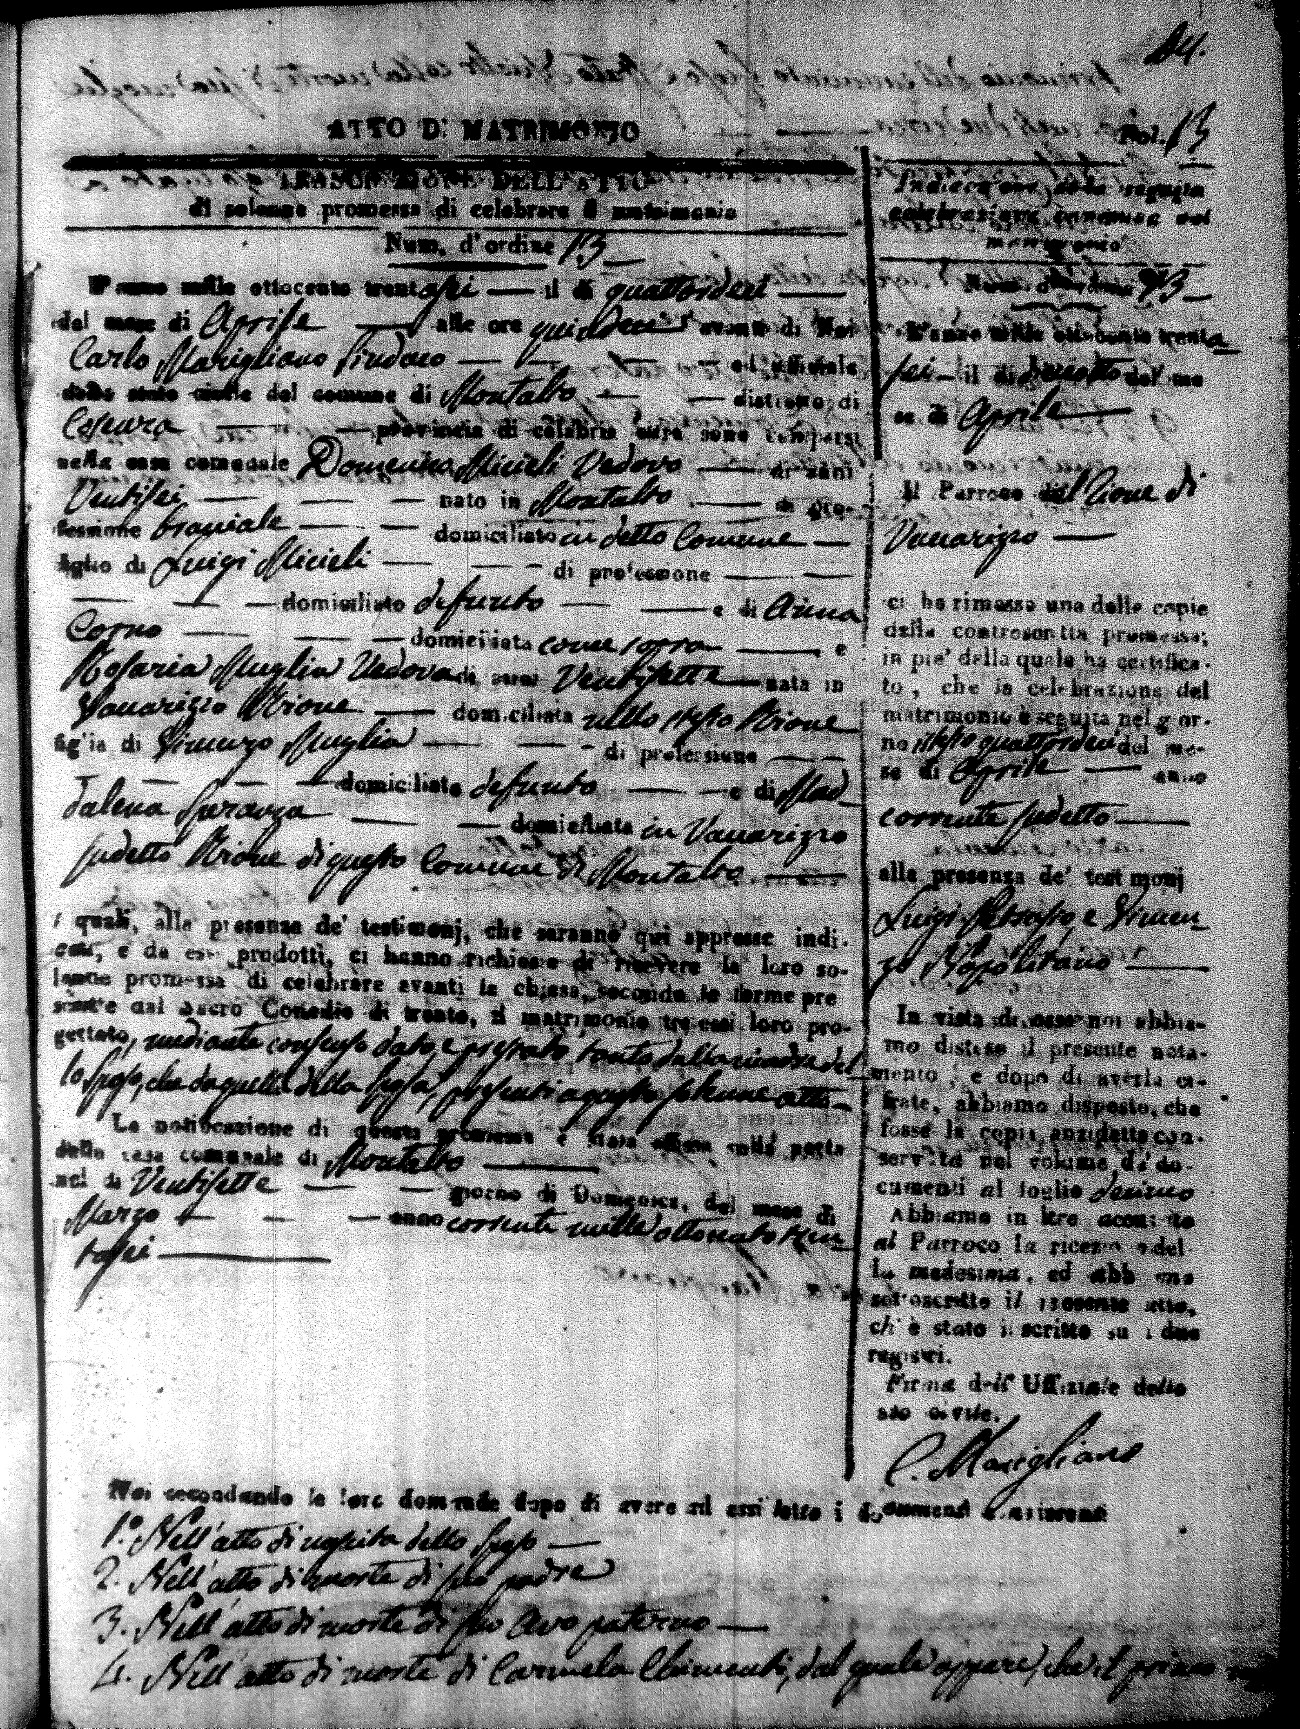 ATTO DI MATRIMONIO
Fol. 13
DELL'ATTO
di solenne promessa di celebrare il matrimonio
Num. d'ordine 13
L'anno mille ottocento trentasei il di quattordeci
del mese di Aprile alle ore quindeci avanti di Noi
Carlo Marigliano Sindaco ed uffiziale
dello stato civile del comune di Montalto distretto di
Cosenza provincia di calabria citra sono comparsi
nella casa comunale Domenico Micieli Vedovo di anni
Ventisei nato in Montalto di pro-
fessione braciale domiciliato in detto Comune
figlio di Luigi Micieli di professione
domiciliato defunto e di Anna
Corno domiciliata come sopra e
Rosaria Muglia Vedova di anni Ventisette nata in
Vaccarizzo Rione domiciliata nello stesso Rione
figlia di Vincenzo Muglia di professione
domiciliato defunto e di Mad
dalena domiciliata in Vaccarizzo
sudetto Rione di questo Comune di Montalto
i quali, alla presenza de' testimonj, che saranno qui appresso indi-
cati, e da essi prodotti, ci hanno richiesto di ricevere la loro so-
lenne promessa di celebrare avanti la chiesa, secondo le forme pre
scritte dal sacro Concilio di trento, il matrimonio tra essi loro pro-
gettato, mediante consenso dato, e prestato tanto dalla madre del
lo sposo, che da quella della sposa, presenti a questo solenne atto
La notificazione di questa promessa è stata affissa nella porta
della casa comunale di Montalto
nel di Ventisette giorno di Domenica, del mese di
Marzo anno corrente mille ottocento tren
tasei
Indicazione della seguita
celebrazione canonica del
matrimonio
Num. d'ordine 13
L'anno mille ottocento trenta
sei il di del me
se di Aprile
Il Parroco del Rione di
Vaccarizzo
ci ha rimessa una delle copie
della controscritta promessa;
in piè della quale ha certifica-
to, che la celebrazione del
matrimonio è seguita nel gior-
no stesso quattordeci del me-
se di Aprile anno
corrente sudetto
alla presenza de' testimonj
Luigi e Vincen
zo Napolitano
In vista di esse noi abbia-
mo disteso il presente nota-
mento, e dopo di averla ci-
frate, abbiamo disposto, che
fosse la copia anzidetta con-
servata nel volume de' do-
cumenti al foglio decimo
Abbiamo in oltre accusato
al Parroco la ricezione del-
la medesima, ed abbiamo
sottoscritto il presente atto,
ch' è stato inscritto su i due
registri.
Firma dell' Uffiziale dello
stato civile.
C. Marigliano
Noi secondando le loro domande dopo di avere ad essi letto i documenti consistenti
1.° Nell'atto di nascita dello sposo
2. Nell'atto di morte di suo padre
3. Nell'atto di morte di suo Avo paterno
4. Nell'atto di morte di Carmela Chimenti, dal quale appare, che il primo